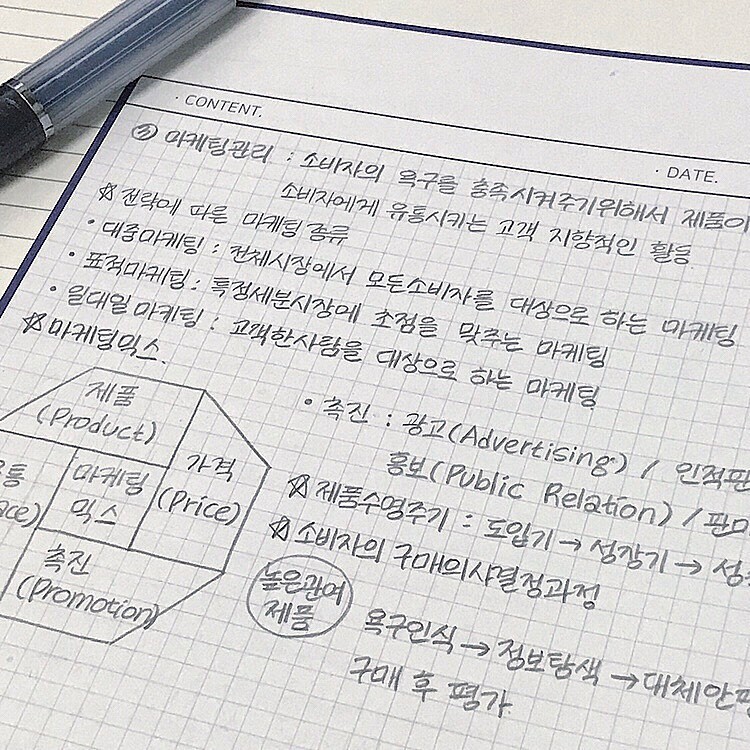 CONTENT.
DATE.
③ 마케팅관리 : 소비자의 욕구를 충족시켜주기위해서 제품이
소비자에게 유통시키는 고객 지향적인 활동
☆ 전략에 따른 마케팅 종류
· 대중마케팅 : 전체시장에서 모든소비자를 대상으로 하는 마케팅
· 표적마케팅 : 특정세분시장에 초점을 맞추는 마케팅
· 일대일 마케팅 : 고객한사람을 대상으로 하는 마케팅
☆ 마케팅믹스.
제품
(Product)
가격
(Price)
마케팅
믹스
촉진
(Promotion)
· 촉진 : 광고(Advertising) / 인적판
홍보(Public Relation) / 판매
☆ 제품수명주기 : 도입기 → 성장기 → 성
☆ 소비자의 구매의사결정과정
높은관여
제품
욕구인식 → 정보탐색 → 대체안평
구매 후 평가